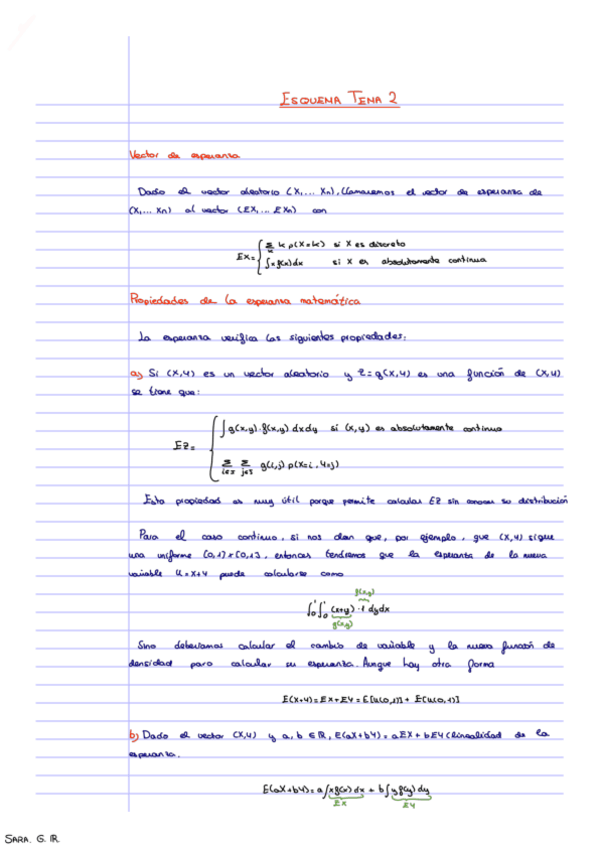 ESQUEMA TEMA 2
Vector de esperanza
Dado el vector aleatorio (X,... Xn), llamaremos el vector de esperanza de
(X,... Xn) al vector (EX,... EXn) con
EX= { Σ k p(X=k) si X es discreto
∫xf(x)dx si X es absolutamente continua
Propiedades de la esperanza matemática
La esperanza verifica las siguientes propiedades:
a) Si (X,Y) es un vector aleatorio y Z=g(X,Y) es una función de (X,Y)
se tiene que:
EZ= { ∫g(x,y)·f(x,y) dxdy si (x,y) es absolutamente continuo
Σ Σ g(i,j) p(X=i, Y=j)
Esta propiedad es muy útil porque permite calcular EZ sin conocer su distribución
Para el caso continuo, si nos dan que, por ejemplo, que (X,Y) sigue
una uniforme [0,1]x[0,1], entonces tendremos que la esperanza de la nueva
variable U=X+Y puede calcularse como
f(x,y)
∫₀¹∫₀¹ (x+y)·1 dydx
g(x,y)
Sino deberíamos calcular el cambio de variable y la nueva función de
densidad para calcular su esperanza. Aunque hay otra forma
E(X+Y)=EX+EY=E[U(0,1)]+E[U(0,1)]
b) Dado el vector (X,Y) y a,b ∈ ℝ, E(aX+bY)=aEX+bEY (linealidad de la
esperanza.
E(aX+bY)=a∫xf(x)dx + b∫yf(y)dy
EX EY
SARA. G. R.